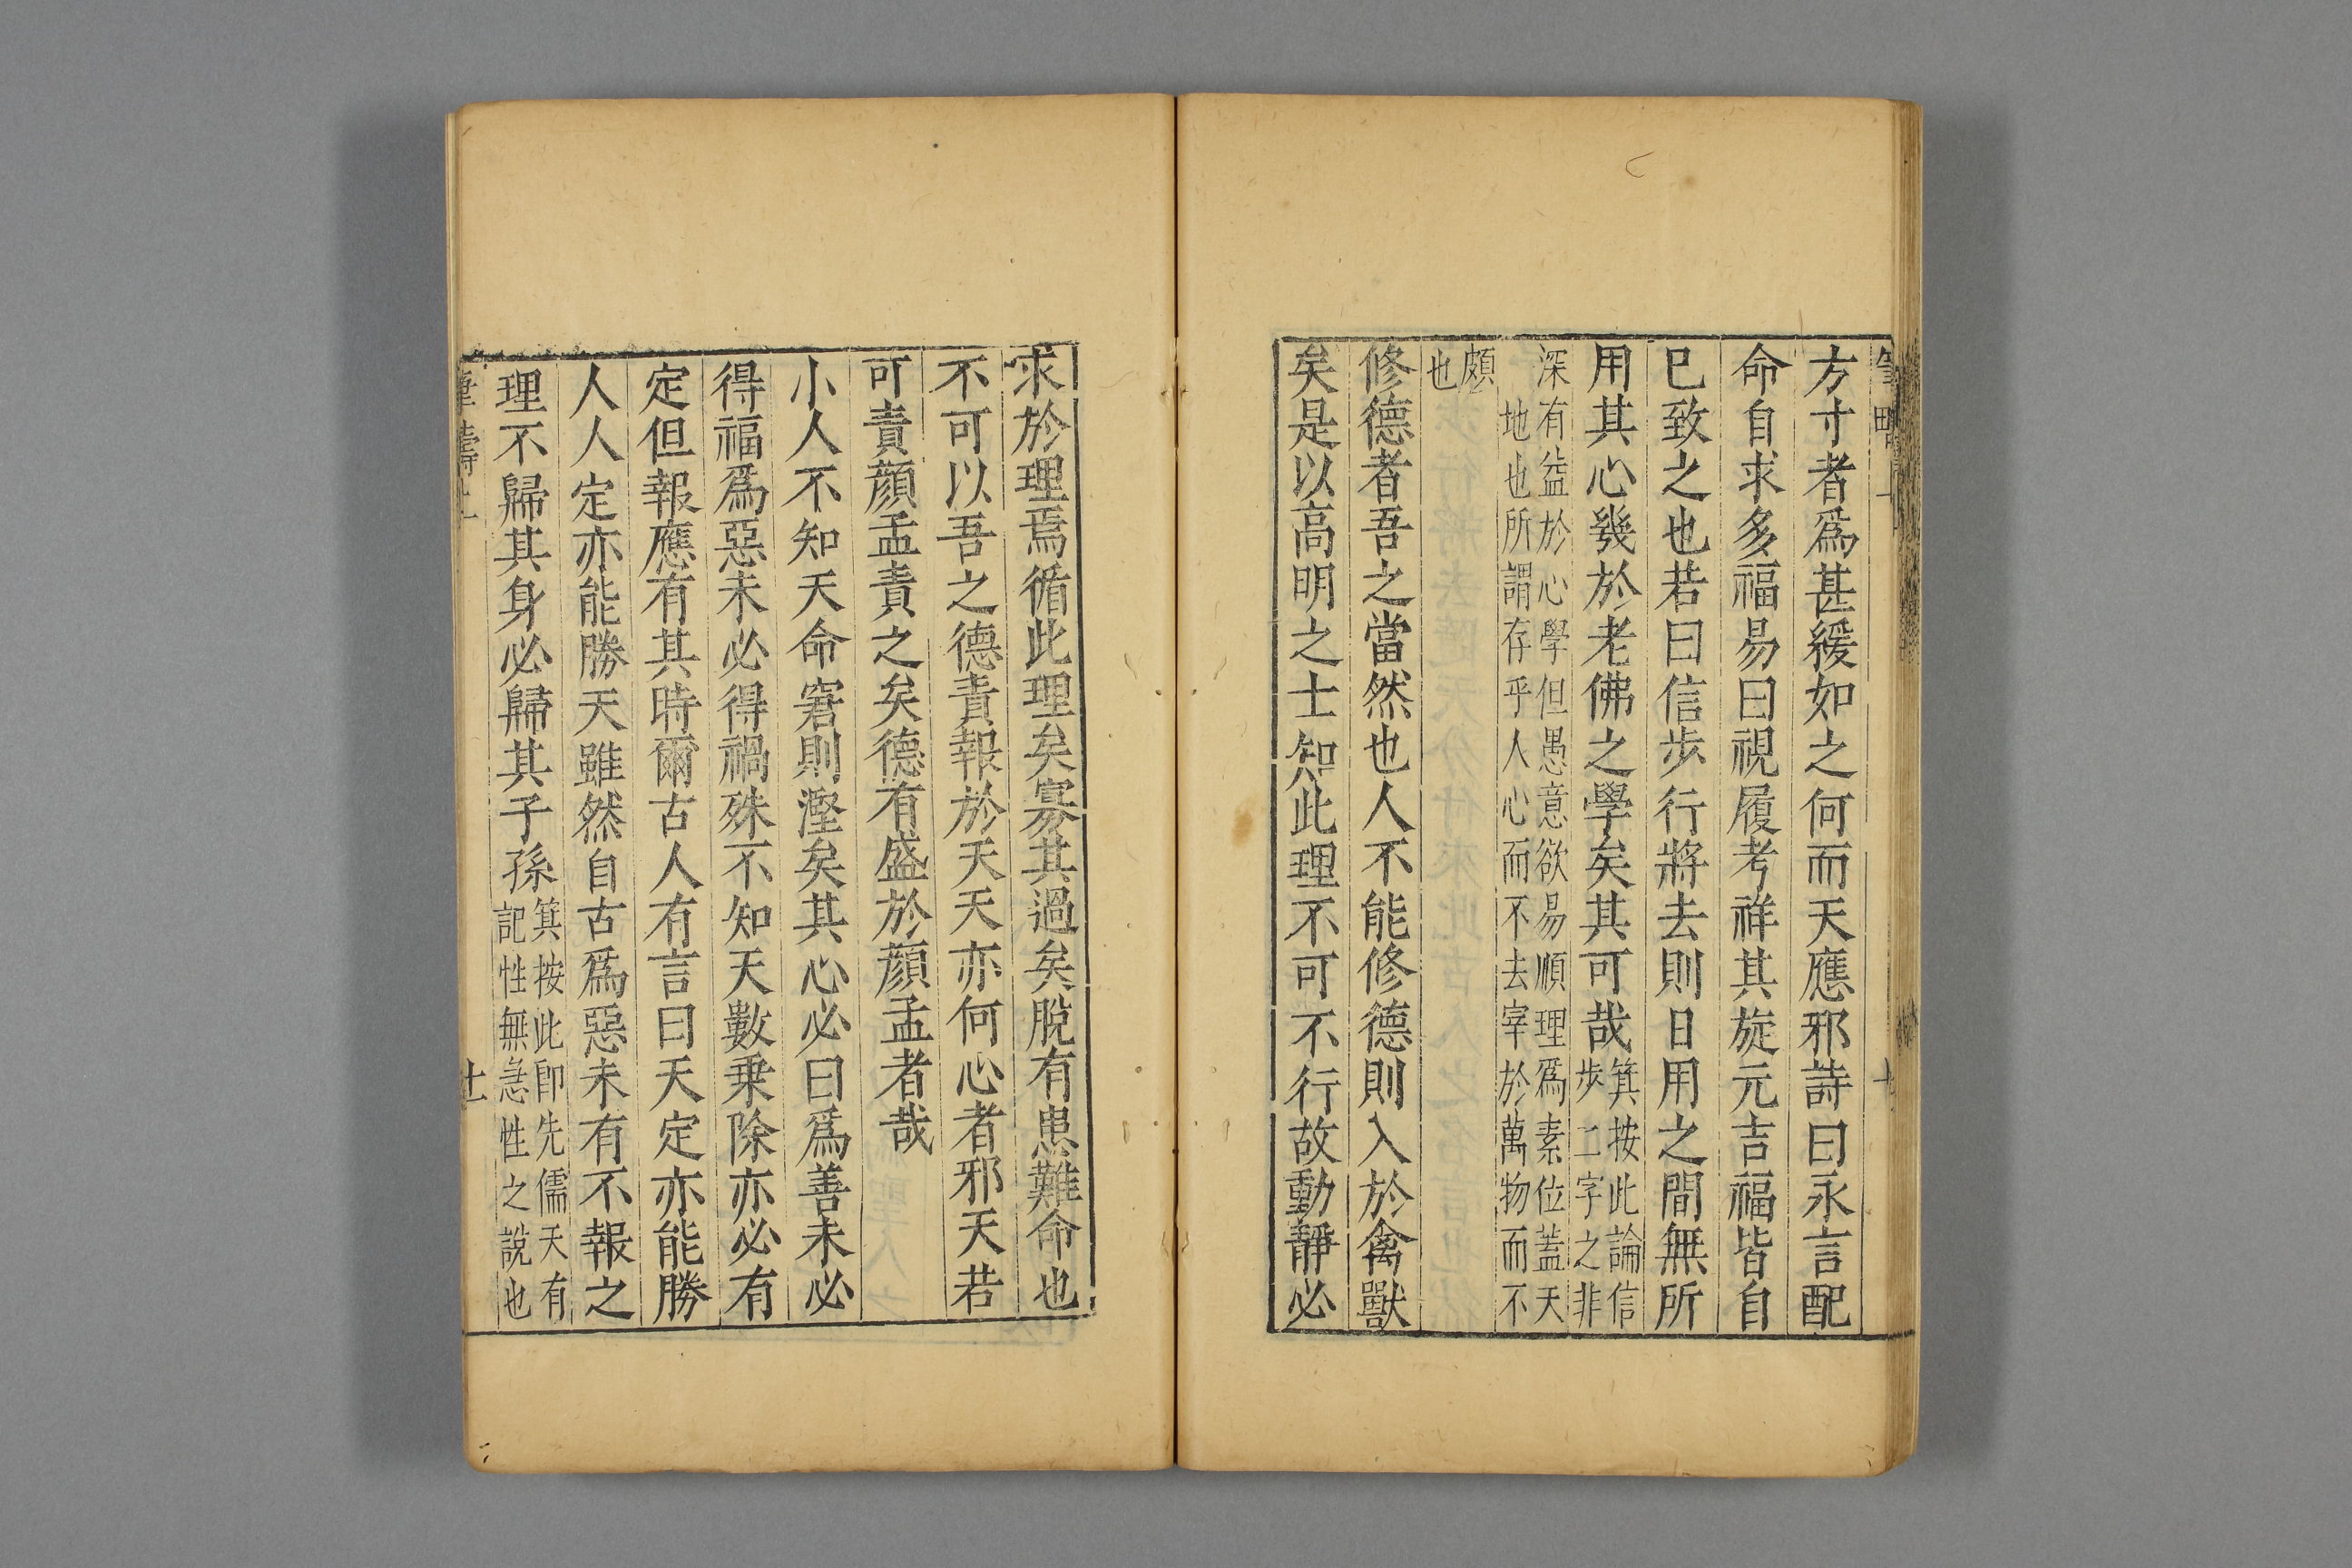 方寸者爲甚緩如之何而天應邪詩曰永言配
命自求多福易曰視履考祥其旋元吉福皆自
已致之也若曰信步行將去則日用之間無所
用其心幾於老佛之學矣其可哉
箕按此論信
步二字之非
深有益於心學但愚意欲易順理爲素位蓋天
地也所謂存乎人心而不去宰於萬物而不
頗
也
修德者吾之當然也人不能修德則入於禽獸
矣是以高明之士知此理不可不行故動靜必
求於理焉循此理矣寡其過矣脫有患難命也
不可以吾之德責報於天天亦何心者邪天若
可責顔孟責之矣德有盛於顔孟者哉
小人不知天命窘則溼矣其心必曰爲善未必
得福爲惡未必得禍殊不知天數乗除亦必有
定但報應有其時爾古人有言曰天定亦能勝
人人定亦能勝天雖然自古爲惡未有不報之
理不歸其身必歸其子孫
箕按此卽先儒天有
記性無急性之說也
筆疇上
十一